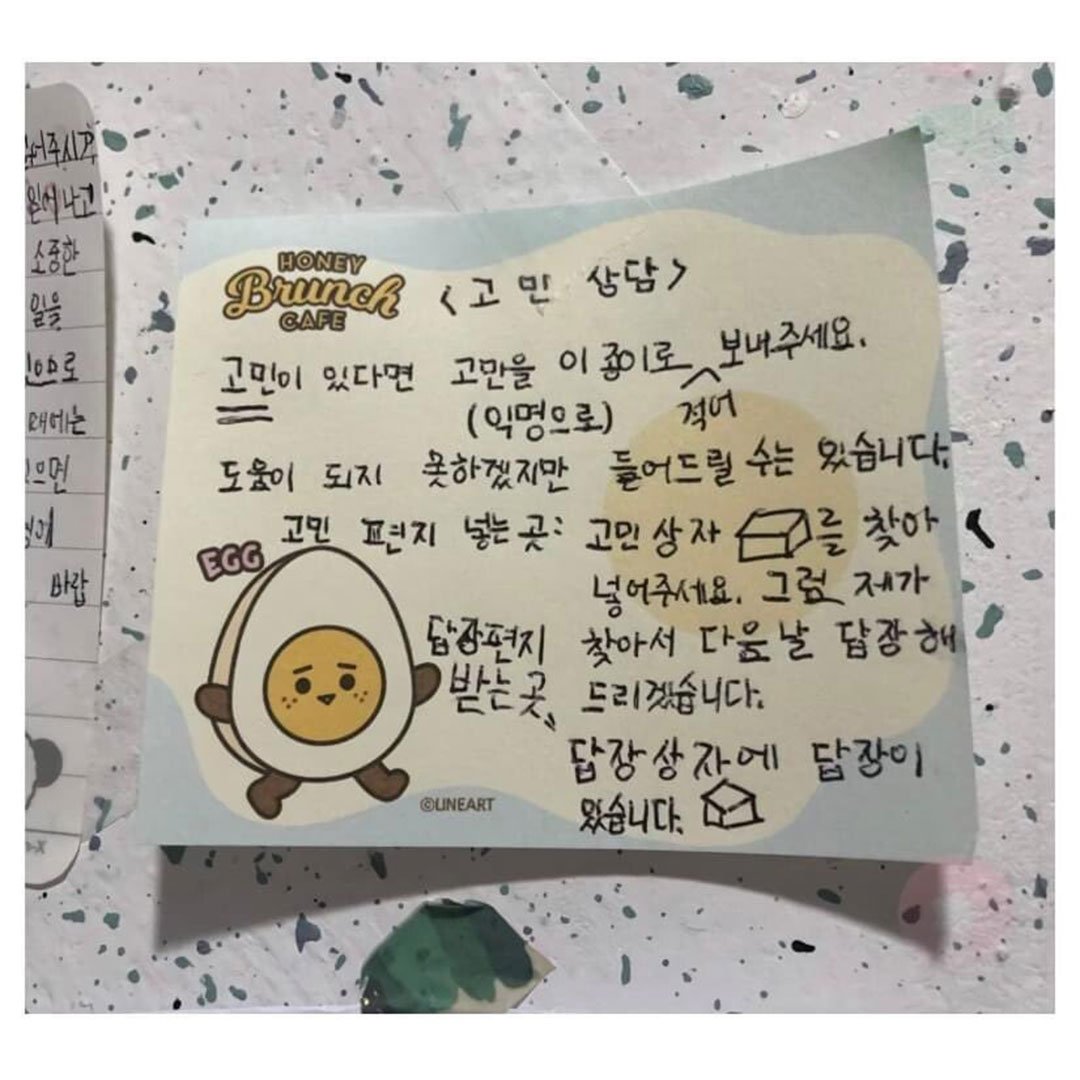 어주시고
소중한
일을
으로
때에는
으면
바랍
HONEY
Brunch
CAFE
<고민 상담>
고민이 있다면 고만을 이 종이로 적어 보내주세요.
(익명으로)
도움이 되지 못하겠지만 들어드릴 수는 있습니다.
고민 편지 넣는 곳: 고민상자 를 찾아
넣어주세요. 그럼 제가
찾아서 다음날 답장해
드리겠습니다.
EGG
답장편지
받는 곳
답장상자에 답장이
있습니다.
©LINEART